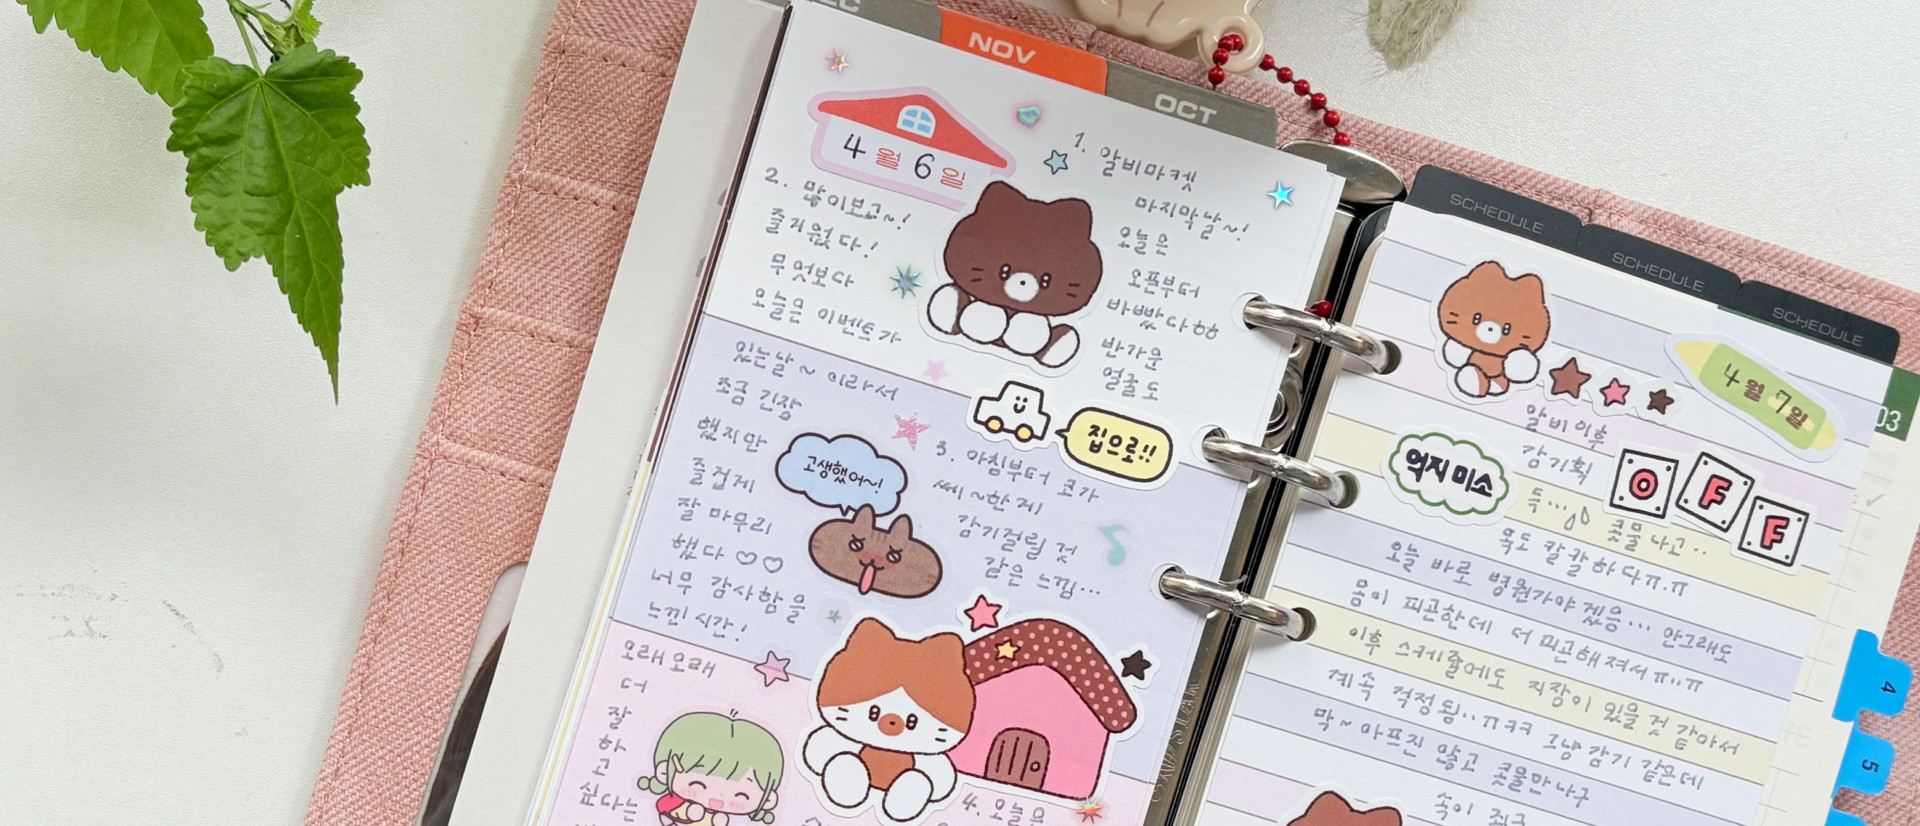 NOV
OCT
4월 6일
1. 알비마켓
마지막날~!
오늘은
오픈부터
바빴다
반가운
얼굴도
2. 많이보고~!
즐거웠다!
무엇보다
오늘은 이벤트가
있는날~ 이라서
조금 긴장
했지만
즐겁게
잘 마무리
했다 ♡♡
너무 감사함을
느낀시간!
오래오래
더
잘
하
고
싶다는
집으로!!
고생했어~!
3. 아침부터 코가
쎄~한게
감기걸릴 것
같은 느낌...
4. 오늘은
SCHEDULE
SCHEDULE
SCHEDULE
03
4월 7일
알비이후
감기획
득...
억지미소
OFF
콧물나고..
목도 칼칼하다ㅠ.ㅠ
오늘 바로 병원가야겠음... 안그래도
몸이 피곤한데 더 피곤해져서ㅠ..ㅠ
이후 스케줄에도 지장이 있을것 같아서
계속 걱정됨..ㅠㅋㅋ 그냥감기 같은데
막~ 아프진 않고 콧물만나구
4
5